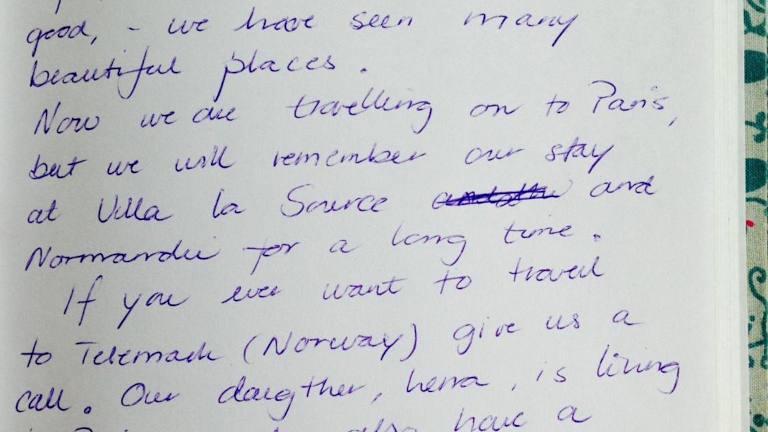 good, - we have seen many
beautiful places.
Now we are travelling on to Paris,
but we will remember our stay
at Villa la Source and
Normandie for a long time.
If you ever want to travel
to Telemark (Norway) give us a
call. Our daugther, , is living
also have a